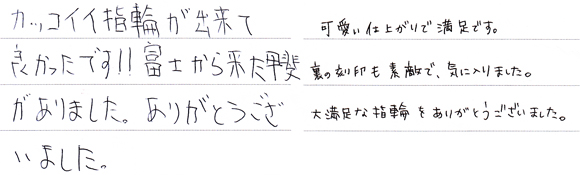 カッコイイ指輪が出来て
良かったです!!富士から来た甲斐
がありました。ありがとうござ
いました。
可愛い仕上がりで満足です。
裏の刻印も素敵で、気に入りました。
大満足な指輪をありがとうございました。